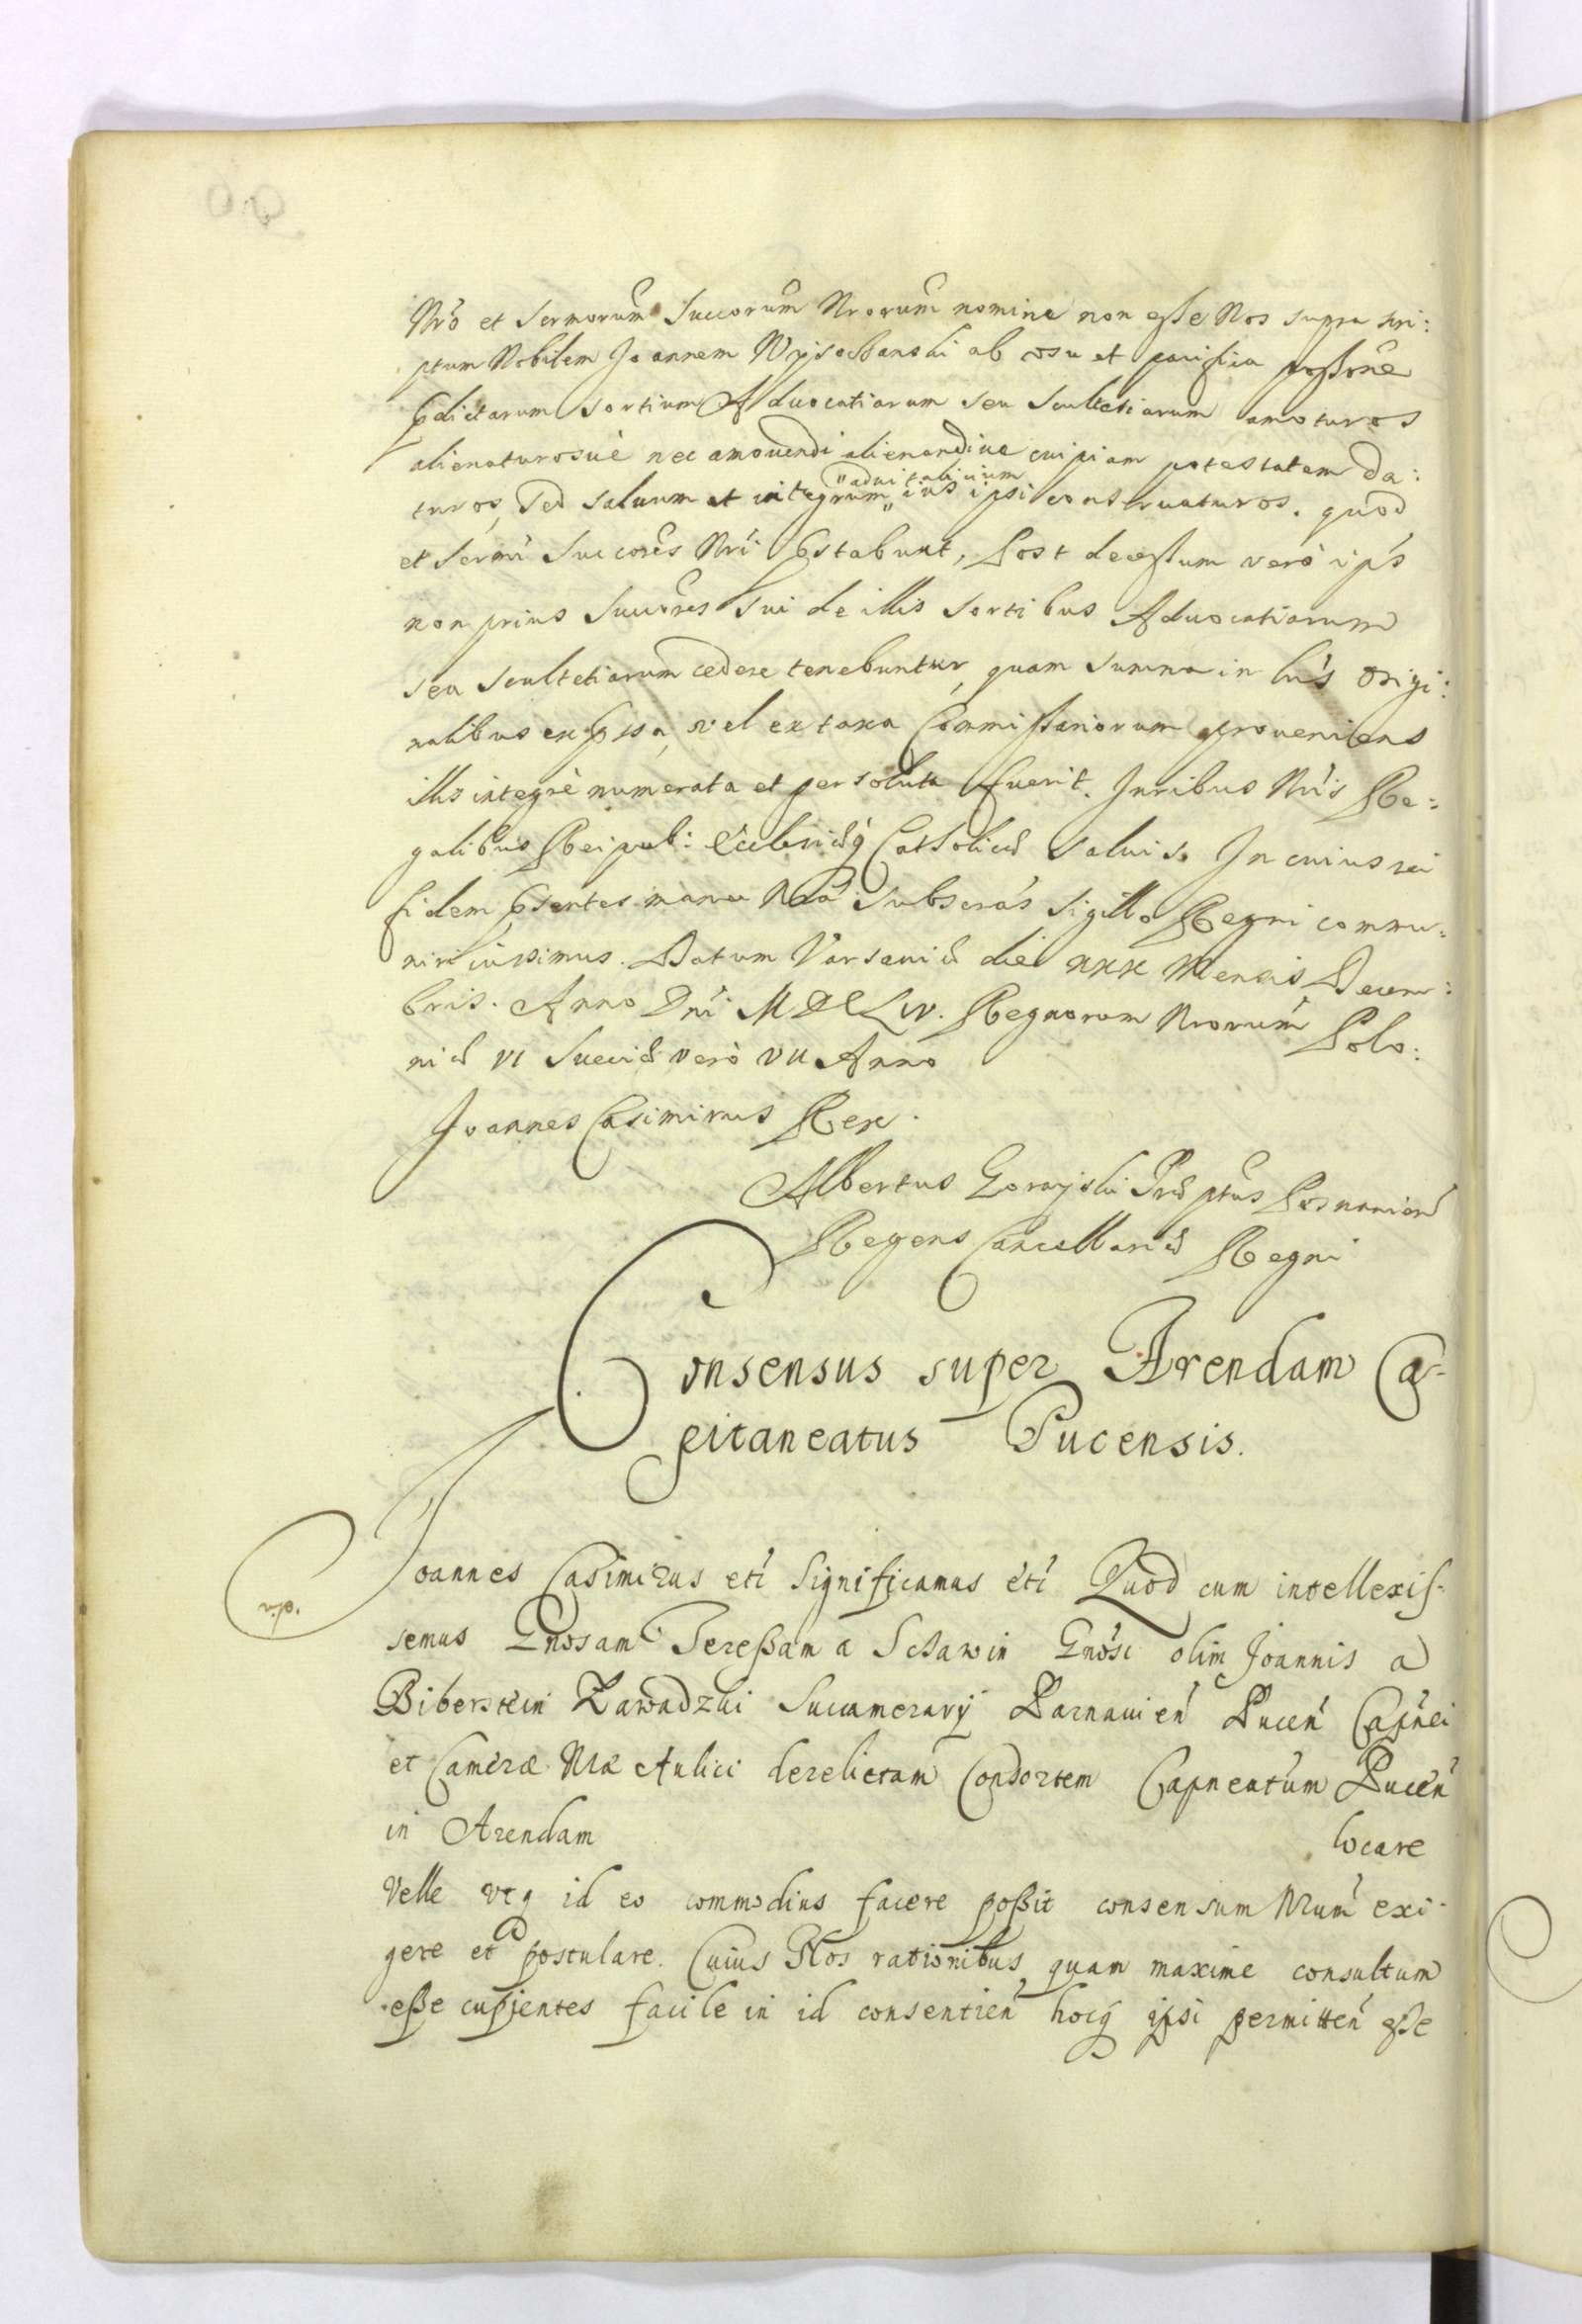 Nro et Sermorum Succorum Nrorum nomine non esse Nos supra scri:
ptum Nobilem Joannem Wysochanski ab usu et pacifica possone
pdictarum sortium Advocatiarum seu Scultetiarum amoturos
alienaturosuè nec amouendi alienandiue cuipiam potestatem da:
turos, Sed saluum et integrum „aduitalitium„ ius ipsi conseruaturos. quod
et Sermi Succores Nri pstabunt, Post decessum verò ipss
non prius Succores sui de illis sortibus Aduocatiarum
seu Scultetiarum cedere tenebuntur, quam summa in lris Origi:
nalibus expssa, vel ex taxa Commissariorum proueniens
illis integrè numerata et persoluta fuerit. Juribus Nris Re:
galibus Reipub: Ecclesiæq Catholicæ saluis. In cuius rei
fidem psentes manu Nra subscras Sigillo Regni commu:
niri iussimus. Datum Varsauiæ die xxx Mensis Decem:
bris. Anno Dni MDCLIV. Regnorum Nrorum Polo:
niæ VI Sueciæ verò VII Anno
Joannes Casimirus Rex.
Albertus Gorayski Præptus Posnanien
Regens Cancellariæ Regni
Consensus super Arendam Ca-
pitaneatus Pucensis.
Joannes Casimirus etc Significamus etc Quod cum intellexis-
semus Gnosam Teressam a Schawin Gnosi olim Joannis a
Biberstein Zawadzki Succamerarÿ Parnauien Pucen Capnei
et Cameræ Nræ Aulici derelictam Consortem Capneatum Pucen
in Arendam locare
Velle vtq id eo commodius facere possit consensum Nrum exi-
gere et postulare. Cuius Nos rationibus, quam maxime consultum
esse cupientes facile in id consentien hocq ipsi permitten esse